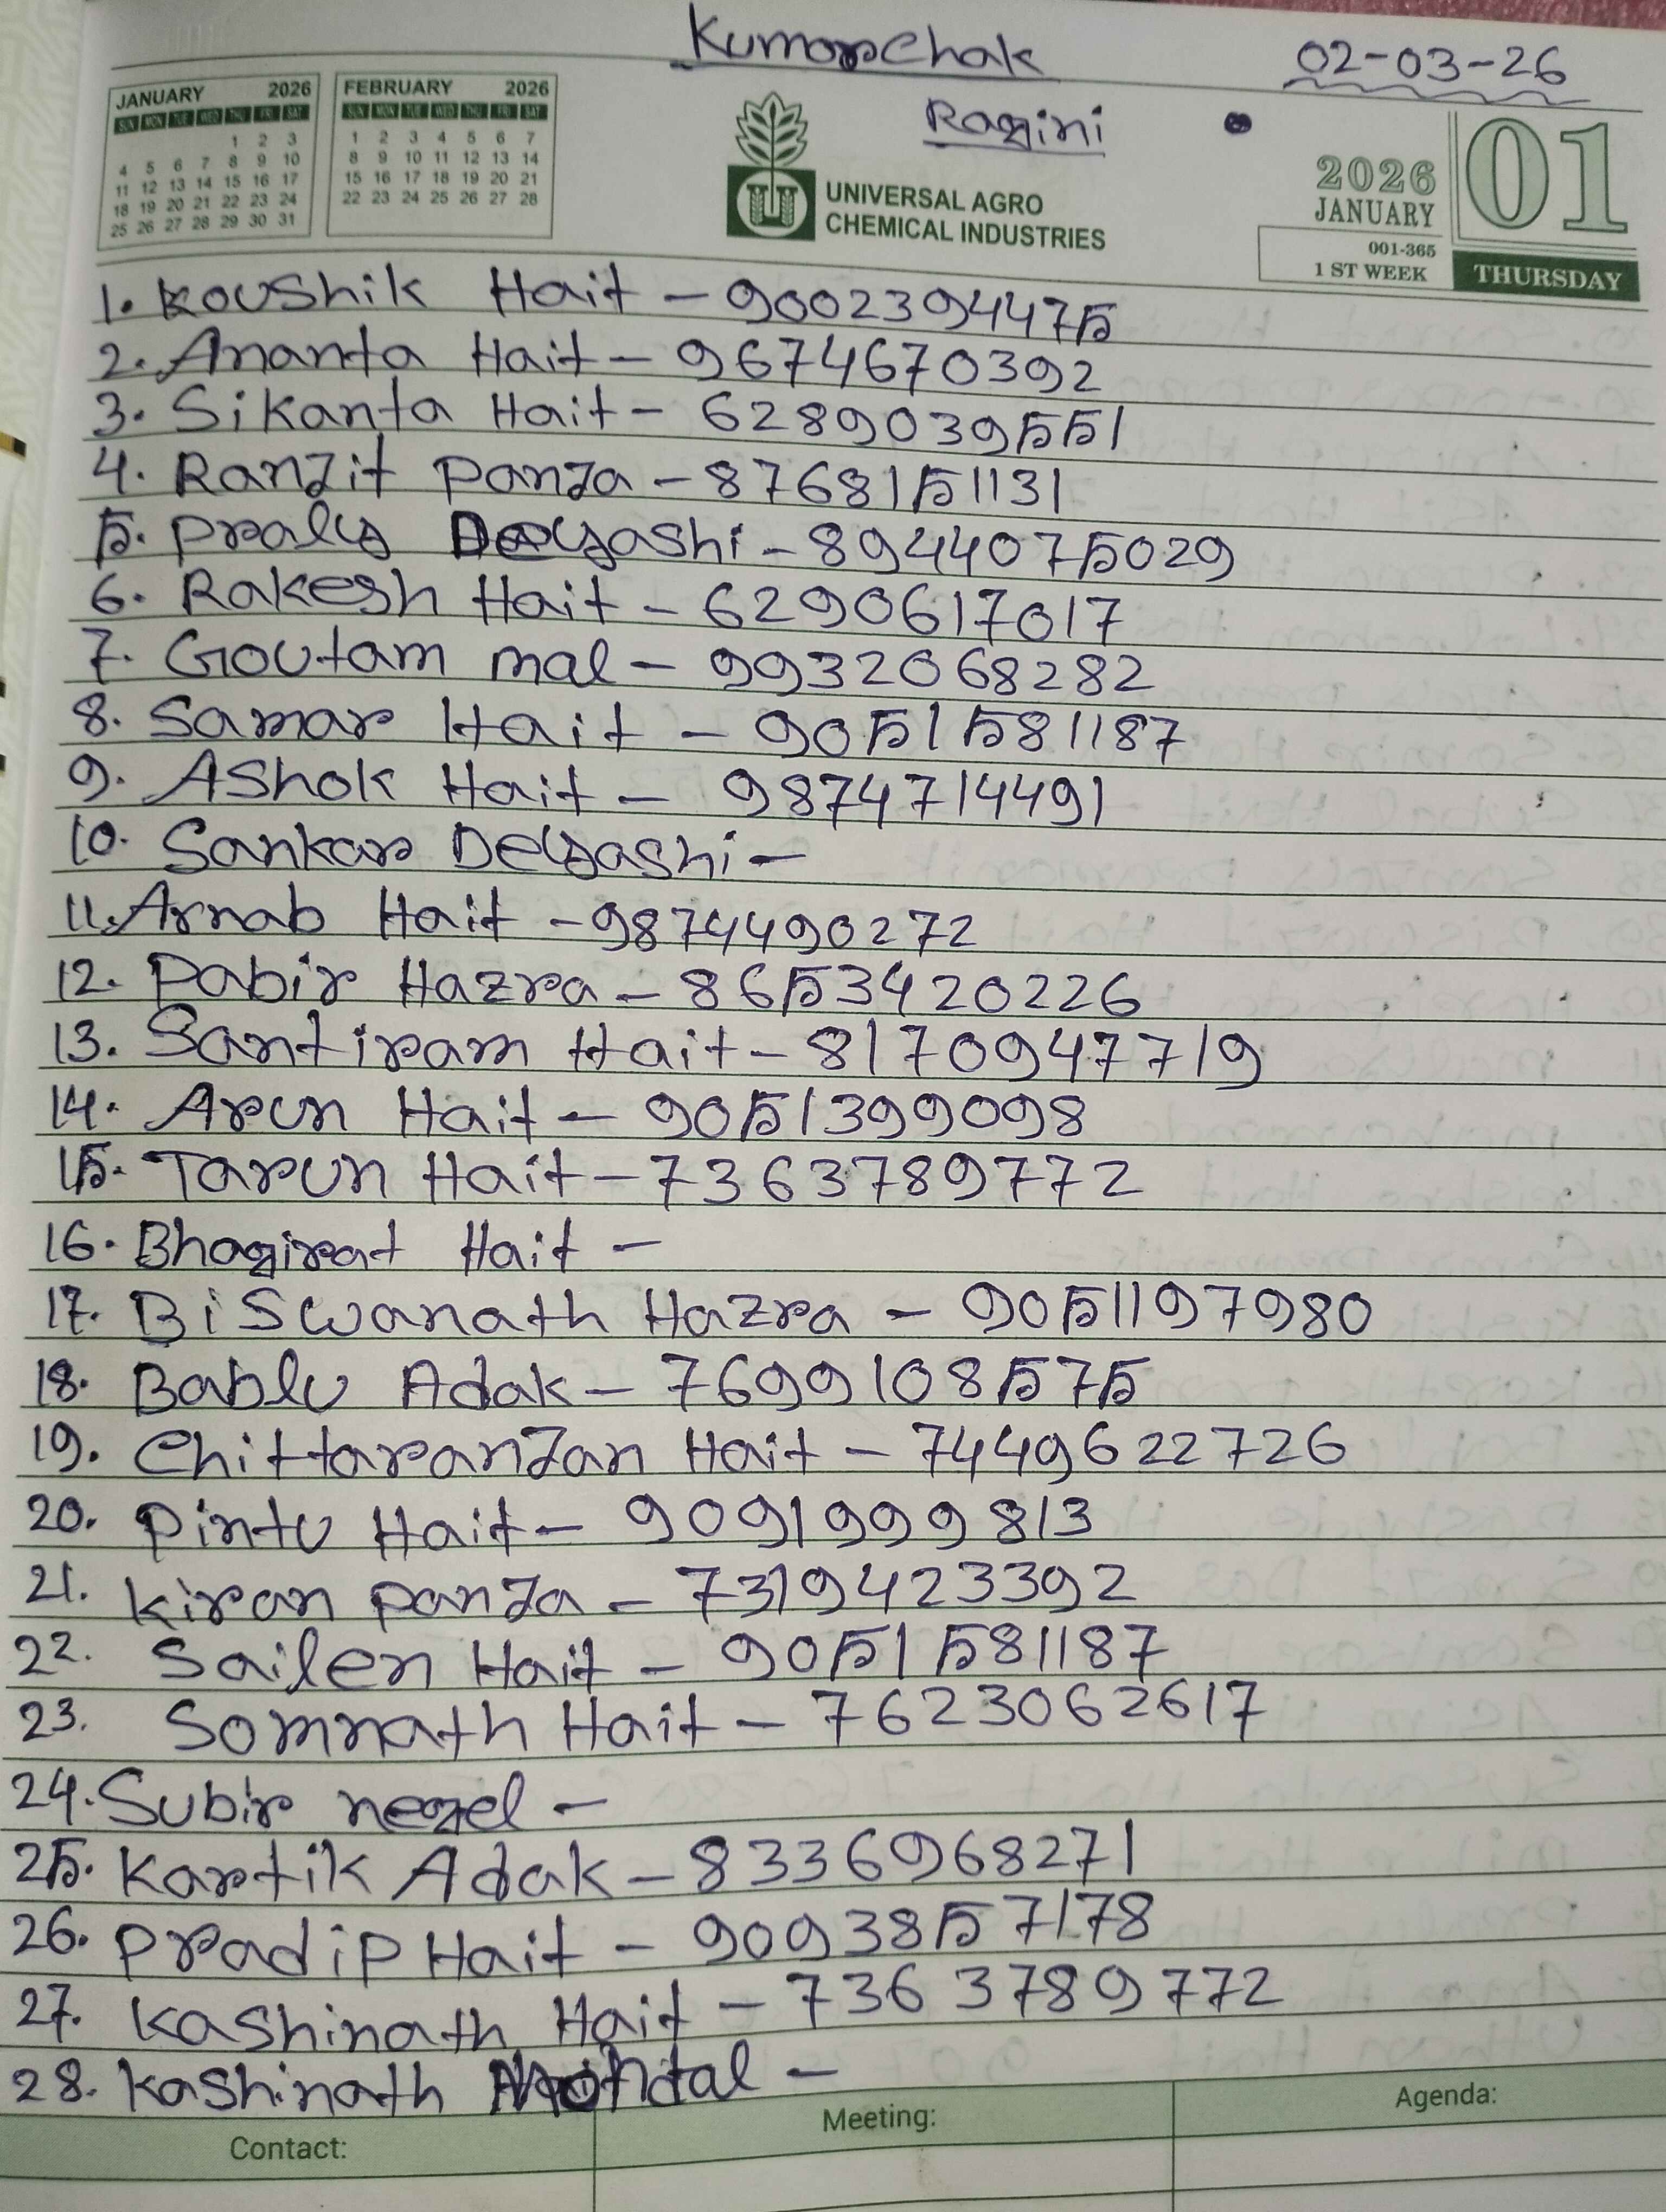 Kumarchak
02-03-26
Ragini
JANUARY 2026
SUN MON TUE WED THU FRI SAT
1 2 3
4 5 6 7 8 9 10
11 12 13 14 15 16 17
18 19 20 21 22 23 24
25 26 27 28 29 30 31
FEBRUARY 2026
SUN MON TUE WED THU FRI SAT
1 2 3 4 5 6 7
8 9 10 11 12 13 14
15 16 17 18 19 20 21
22 23 24 25 26 27 28
UNIVERSAL AGRO
CHEMICAL INDUSTRIES
2026
JANUARY
001-365
1 ST WEEK
01
THURSDAY
1. Koushik Hait - 9002394475
2. Ananta Hait - 9674670392
3. Sikanta Hait - 6289039551
4. Ranjit Panja - 8768151131
5. Pralay Deyashi - 8944075029
6. Rakesh Hait - 6290617017
7. Goutam mal - 9932068282
8. Samar Hait - 9051581187
9. Ashok Hait - 9874714491
10. Sankar Deyashi -
11. Arnab Hait - 9874490272
12. Pabir Hazra - 8653420226
13. Santiram Hait - 8170947719
14. Arun Hait - 9051399098
15. Tarun Hait - 7363789772
16. Bhagirat Hait -
17. Biswanath Hazra - 9051197980
18. Bablu Adak - 7699108575
19. Chittaranjan Hait - 7449622726
20. Pintu Hait - 9091999813
21. Kiran Panja - 7319423392
22. Sailen Hait - 9051581187
23. Somnath Hait - 7623062617
24. Subir negel -
25. Kartik Adak - 8336968271
26. Pradip Hait - 9093857178
27. Kashinath Hait - 7363789772
28. Kashinath Mondal -
Contact:
Meeting:
Agenda: